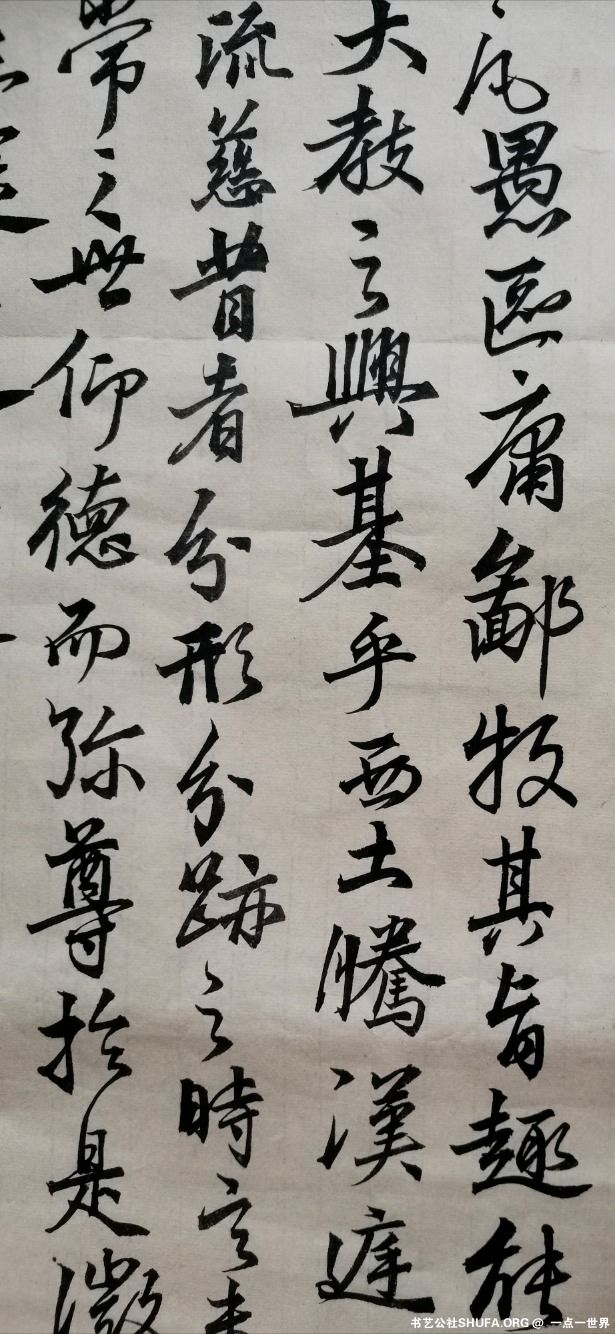 凡愚區庸鄙投其旨趣能
大教之興基乎西土騰漢庭
流慈昔者分形分跡之時言未
常之世仰德而弥尊於是微
书艺公社SHUFA.ORG @ 一点一世界